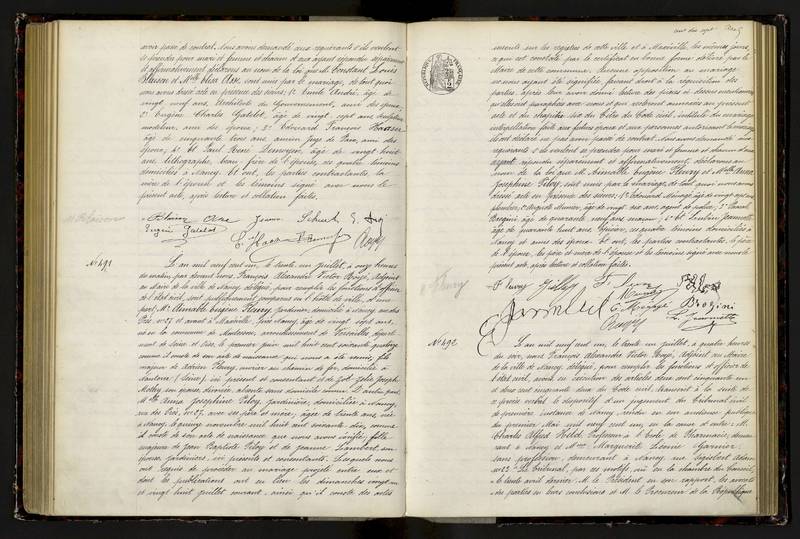 avoir passé de contrat. Nous avons demandé aux requérants s'ils veulent
se prendre pour mari et femme et chacun d'eux ayant répondu séparément
et affirmativement déclarons au nom de la loi que M. Constant Louis
Blaison et Mlle Elisa Axe, sont unis par le mariage, de tout quoi
nous avons dressé acte en présence des sieurs 1° Emile André, âgé de
vingt neuf ans, Architecte du Gouvernement, ami des époux,
2° Eugène Charles Gatelot, âgé de vingt sept ans, sculpteur
modeleur, ami des époux, 3° Edouard François Haase,
âgé de cinquante trois ans, ancien Juge de Paix, ami des
époux; 4° et Paul René âgé de vingt huit
ans, lithographe, beau-frère de l'épouse, ces quatre témoins
domiciliés à Nancy. Et ont, les parties contractantes, la
mère de l'époux et les témoins signé avec nous le
présent acte, après lecture et collation faites.
Blaison
Blaison Axe
Eugène Gatelot
N° 491
L'an mil neuf cent un, le trente un juillet, à onze heures
du matin, par devant nous, François Alexandre Victor Boyé, Adjoint
au Maire de la ville de Nancy, délégué, pour remplir les fonctions d'officier
de l'état civil, sont publiquement comparus en l'hôtel de ville, d'une
part, M. Aimable Eugène Fleury, Jardinier, domicilié à Nancy, rue des
Prés, N° 27 et avant à Maxéville, près Nancy, âgé de vingt sept ans,
né en la commune de arrondissement de Versailles, département
de Seine et Oise, le premier juin mil huit cent soixante quatorze
comme il conste de son acte de naissance qui nous a été remis, fils
majeur de Adrien Fleury, ouvrier au chemin de fer, domicilié à
Nanterre (Seine), ici présent et consentant et de Zoé Zélie Joseph
sans domicile connu. D'autre part,
Mlle Anna Joséphine Péloy, Jardinière, domiciliée à Nancy,
rue des Prés, N° 27, avec ses père et mère; âgée de trente ans, née
à Nancy, le quinze novembre mil huit cent soixante dix, comme
il conste de son acte de naissance que nous avons vérifié, fille
majeure de Jean Baptiste Péloy et de Jeanne Lambert, son
épouse, jardiniers, ici présents et consentants. Lesquels nous
ont requis de procéder au mariage projeté entre eux et
dont les publications ont eu lieu les dimanches vingt un
et vingt huit juillet courant, ainsi qu'il conste des actes
inscrits sur les registres de cette ville et à Maxéville, les mêmes jours,
ce qui est constaté par le certificat en bonne forme délivré par le
Maire de cette commune. Aucune opposition au mariage
ne nous ayant été signifiée, faisant droit à la réquisition des
parties, après leur avoir donné lecture des pièces ci-dessus mentionnées
qu'elles ont paraphées avec nous et qui resteront annexées au présent
acte et du chapitre six du Titre du Code civil, intitulé du mariage,
interpellation faite aux futurs époux et aux personnes autorisant le mariage,
ils ont déclaré ne pas avoir passé de contrat. Nous avons demandé aux
requérants s'ils veulent se prendre pour mari et femme et chacun d'eux
ayant répondu séparément et affirmativement, déclarons au
nom de la loi que M. Aimable Eugène Fleury et Mlle Anna
Joséphine Péloy, sont unis par le mariage, de tout quoi nous avons
dressé acte en présence des sieurs, 1° Edouard
plombier, 2° Auguste âgé de vingt six ans, agent de police, 3° Vincent
Brogini âgé de quarante neuf ans, maçon, 4° et
âgé de quarante huit ans, épicier, ces quatre témoins domiciliés à
Nancy et amis des époux. Et ont, les parties contractantes, le père
de l'époux, les père et mère de l'épouse et les témoins signé avec nous le
présent acte, après lecture et collation faites.
Fleury
Fleury
Brogini
N° 492
L'an mil neuf cent un, le trente un juillet, à quatre heures
du soir, nous François Alexandre Victor Boyé, Adjoint au Maire
de la ville de Nancy, délégué, pour remplir les fonctions d'officier de
l'état civil, avons en exécution des articles deux cent cinquante un
et deux cent cinquante deux du Code civil, transcrit à la suite de
ce procès verbal le dispositif d'un jugement du Tribunal civil
de première instance de Nancy rendu en son audience publique
du premier Mai mil neuf cent un, en la cause d'entre: M.
Charles Alfred Held, Professeur à l'Ecole de Pharmacie, demeurant
à Nancy et Mme Marguerite Léonie Garnier,
sans profession, demeurant à Nancy, rue Gigisbert Adam,
N° 23. Le Tribunal, par ces motifs, ouï en la chambre du Conseil,
le trente avril dernier, M. le Président en son rapport, les avoués
des parties en leurs conclusions et M. le Procureur de la République